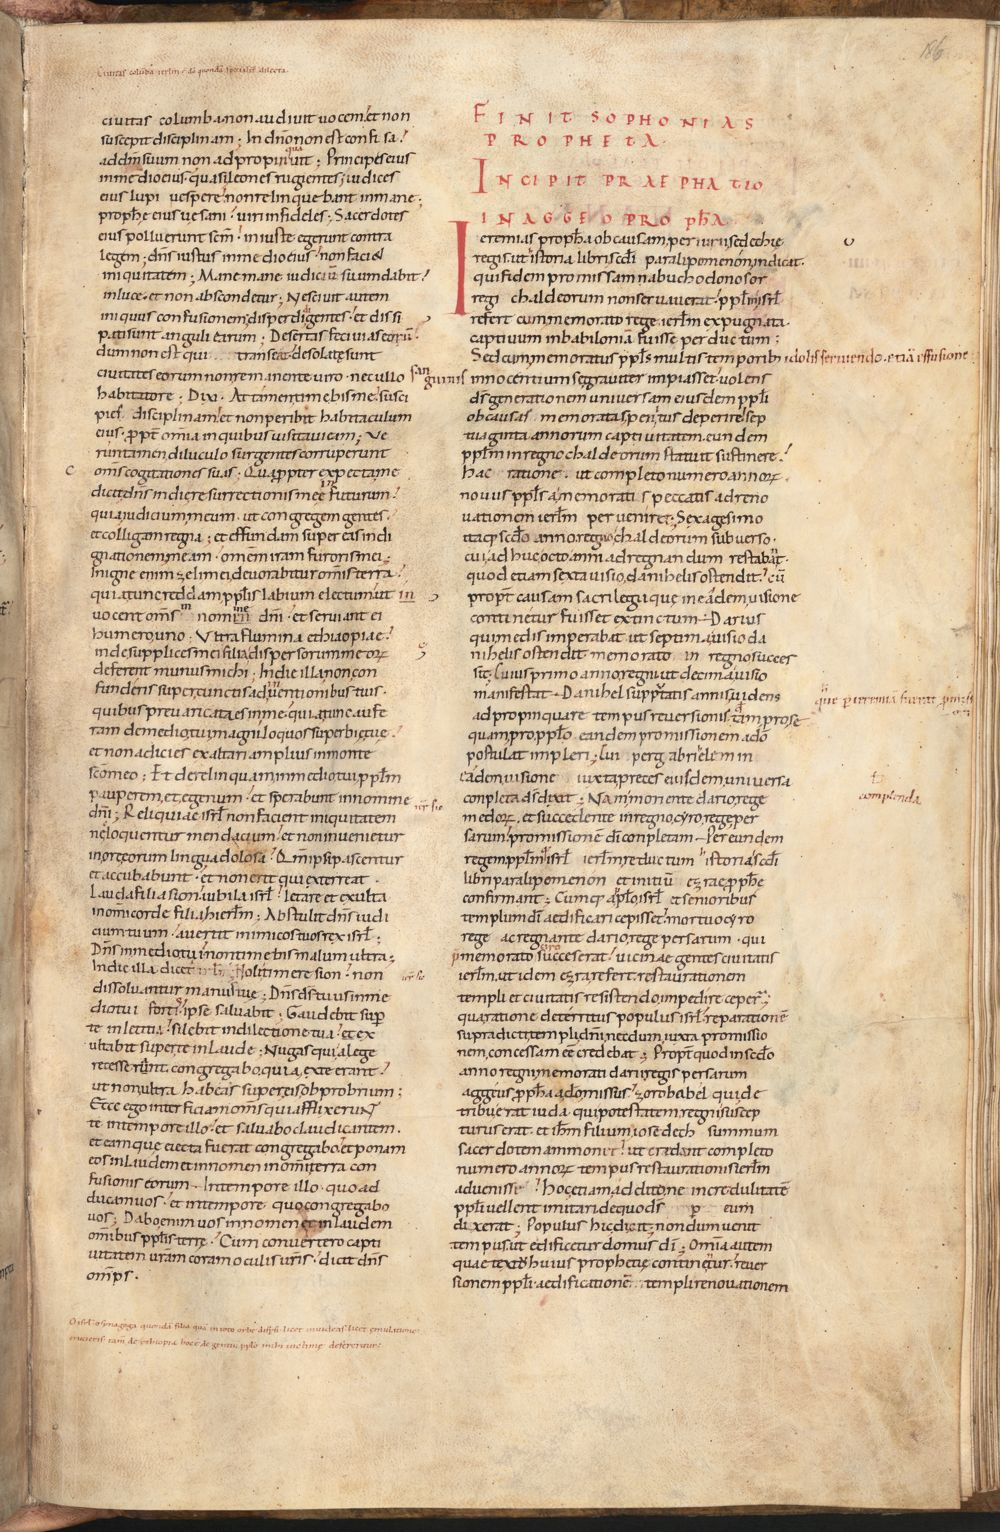 Civitas columba ierlm ē dō quondā specialit dilecta.
186
civitas columba non audivit vocem et non
suscepit disciplinam; In dño non est confisa
ad dm suum non adpropin qua vit; Principes eius
in medio eius quasi leones rugientes; iudices
eius lupi vespere non relinquebant in mane;
prophe eius vesani viri infideles; Sacerdotes
eius polluerunt scm iniuste egerunt contra
legem; dns iustus in medio eius non faciet
iniquitatem; Mane mane iudiciū suum dabit
in luce et non abscondetur; Nescivit autem
iniquus confusionem disperdi gentes et dissi
pati sunt anguli earum; Desertas feci vias eorū
dum non est qui transeat desolatę sunt
civitates eorum non remanente viro nec ullo
habitatore; Dixi Attamen timebis me susci
pies disciplinam et non peribit habitaculum
eius ppt omia in quibus visitavi eam; Ve
runtamen diluculo surgentes corruperunt
oms cogitationes suas; Quappter expecta me
dicit dns in die resurrectionis meę in futurum
quia iudicium meum ut congregem gentes
et colligam regna; et effundam super eas indi
gnationem meam omem iram furoris mei;
In igne enim zeli mei devorabitur omis terra
quia tunc reddam pplis labium electum ut in
vocent oms in nomine dni et serviant ei
humero uno; Ultra flumina ethiopiae
inde supplices mei filia dispersorum meoꝝ
deferent munus michi; In die illa non con
funderis super cunctis adinventionibus tuis
quibus prevaricata es in me quia tunc aufe
ram de medio tui magniloquos superbię tuę
et non adicies exaltari amplius in monte
sco meo; Et derelinquam in medio tui pplm
pauperem et egenum et sperabunt in nomine
dni; Reliquiae isrl non facient iniquitatem
nec loquentur mendacium et non invenietur
in ore eorum lingua dolosa Qm ipsi pascentur
et accubabunt et non erit qui exterreat
Lauda filia sion iubila isrl letare et exulta
in omi corde filia hierlm; Abstulit dns iudi
cium tuum avertit inimicos tuos rex isrl;
Dns in medio tui non timebis malum ultra;
In die illa dicet ierlm Noli timere sion non
dissolvantur manus tuę; Dns ds tuus in me
dio tui fortis ipse salvabit Gaudebit sup
te in letitia silebit in dilectione tua et ex
ultabit super te in laude Nugas qui a lege
recesserunt congregabo quia ex te erant
ut non ultra habeas super eis obprobrium;
Ecce ego interficiam oms qui afflixerunt
te in tempore illo et salvabo claudicantem
et eam que eiecta fuerat congregabo et ponam
eos in laudem et in nomen in omi terra con
fusionis eorum In tempore illo quo ad
ducam vos et in tempore quo congregabo
vos; Dabo enim vos in nomen et in laudem
omibus pplis terrę Cum convertero capti
vitatem vram coram oculis vris dicit dns
omps.
FINIT SOPHONIAS
PROPHETA
INCIPIT PRAEPHATIO
IN AGGEO PROPHA
Ieremias propha ob causam periurii sedechię
regis ut istoria libri scdi paralipomenon indicat
qui fidem promissam nabuchodonosor
regi chaldeorum non servaverat pplm isrl
refert cum memorato rege ierlm expugnata
captivum in babiloniā fuisse perductum;
Sed cum memoratus ppls multis temporib idolis serviendo etiā effusione
sanguinis innocentium se graviter impiasset volens
ds generationem universam eiusdem ppli
ob causas memoratas penitus deperire sep
tuaginta annorum captivitatem eundem
pplm in regno chaldeorum statuit sustinere
hac ratione ut completo numero annoꝝ
novus ppls a memoratis peccatis ad reno
vationem ierlm perveniret; Sexagesimo
itaq scdo anno regno chaldeorum subverso
cui adhuc octo anni ad regnandum restabat
quod etiam sexta visio danihelis ostendit cū
propt causam sacrilegii que in eadem visione
continetur fuisset extinctum Darius
qui medis imperabat ut septima visio da
nihelis ostendit memorato in regno succes
sit; Cuius primo anno regni ut decima visio
manifestat Danihel supptatis annis videns
adpropinquare tempus reversionis tam pro se
quam pro pplo eandem promissionem a dō
postulat impleri; Cui per gabrielem in
eadem visione iuxta preces eiusdem universa
conpleta ds dixit; Nam moriente dario rege
medoꝝ et succedente in regno cyro rege per
sarum promissionē di completam Per eundem
regem pplm isrl ierlm reductum istoria scdi
libri paralipomenon et initiū ezrae pphe
confirmant; Cumq a pplo isrl et senioribus
templum di aedificari cepisset mortuo cyro
rege ac regnante dario rege persarum qui
memorato cyro successerat vicinae gentes civitatis
ierlm ut idem ezra refert restaurationem
templi et civitatis resistendo impedire ceper;
qua ratione deterritus populus isrl reparationē
supradicti templi dni necdum iuxta promissio
nem concessam eē credebat; Propt quod in scdo
anno regni memorati darii regis persarum
aggeus ppha a dō missus zorobabel qui de
tribu erat iuda qui potestatem regni suscep
turus erat et ihm filium iosedech summum
sacerdotem ammonet ut credant completo
numero annoꝝ tempus restaurationis ierlm
advenisse hoc etiam addit one incredulitatē
ppli vellent imitari de quo ds p eum
dixerat; Populus hic dicit nondum venit
tempus ut edificetur domus di; Omia autem
quae textus huius prophetię continetur rever
sionem ppli aedificationē templi renovationem
que p ieremiā fuerat pmissa
complenda
O isrl o synagoga quondā filia quā in toto orbe dispsi licet invideas licet emulatione
crucieris tam de ęthiopia hoc ē de gentiū pplo mihi victimę deferentur: